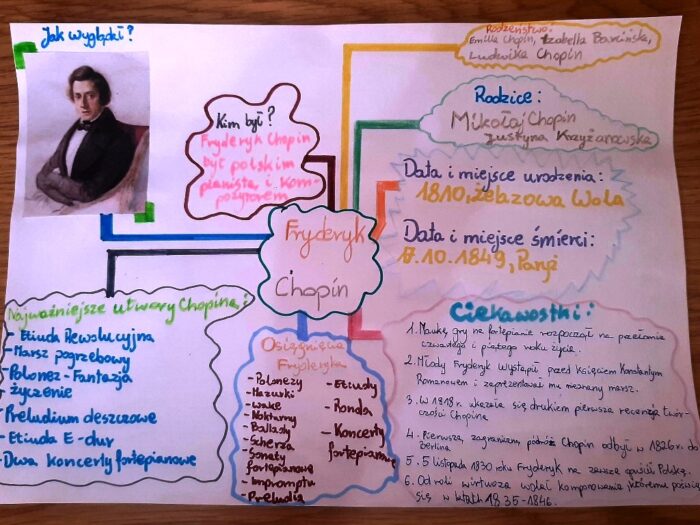 Jak wyglądał?
Rodzeństwo:
Emilia Chopin, Izabella Barcińska,
Ludwika Chopin
Kim był?
Fryderyk Chopin
był polskim
pianistą i kom-
pozytorem
Rodzice:
Mikołaj Chopin
Justyna Krzyżanowska
Data i miejsce urodzenia:
1810, Żelazowa Wola
Data i miejsce śmierci:
17.10.1849, Paryż
Fryderyk
Chopin
Najważniejsze utwory Chopina:
- Etiuda Rewolucyjna
- Marsz pogrzebowy
- Polonez-Fantazja
- życzenie
- Preludium deszczowe
- Etiuda E-dur
- Dwa Koncerty fortepianowe
Osiągnięcia
Fryderyka
- Polonezy
- Mazurki
- walce
- Nokturny
- Ballady
- Scherza
- Sonaty
fortepianowe
- Impromptu
- Preludia
- Etiudy
- Ronda
- Koncerty
fortepianowe
Ciekawostki:
1. Naukę gry na fortepianie rozpoczął na przełomie
czwartego i piątego roku życia.
2. Młody Fryderyk wystąpił przed księciem Konstantym
Romanowem i zaprezentował mu nieznany marsz.
3. W 1818 r. ukazała się drukiem pierwsza recenzja twór-
czości Chopina
4. Pierwszą zagraniczną podróż Chopin odbył w 1826 r. do
Berlina
5. 5 listopada 1830 roku Fryderyk na zawsze opuścił Polskę.
6. Od roli wirtuoza wolał komponowanie, któremu poświę
się w latach 1835-1846.